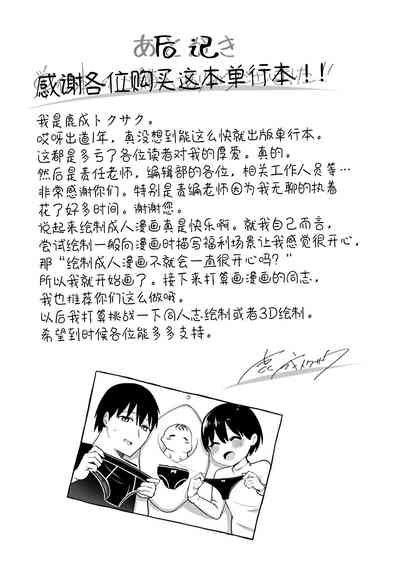 后记
感谢各位购买这本单行本！！
我是鹿成トクサク。
哎呀出道1年，真没想到能这么快就出版单行本。
这都是多亏了各位读者对我的厚爱。真的。
然后是责任老师，编辑部的各位，相关工作人员等…
非常感谢你们。特别是责编老师因为我无聊的执着
花了好多时间。谢谢您。
说起来绘制成人漫画真是快乐啊。就我自己而言，
尝试绘制一般向漫画时描写福利场景让我感觉很开心，
那“绘制成人漫画不就会一直很开心吗？”
所以我就开始画了。接下来打算画漫画的同志，
我也推荐你们这么做哦。
以后我打算挑战一下同人志绘制或者3D绘制。
希望到时候各位能多多支持。